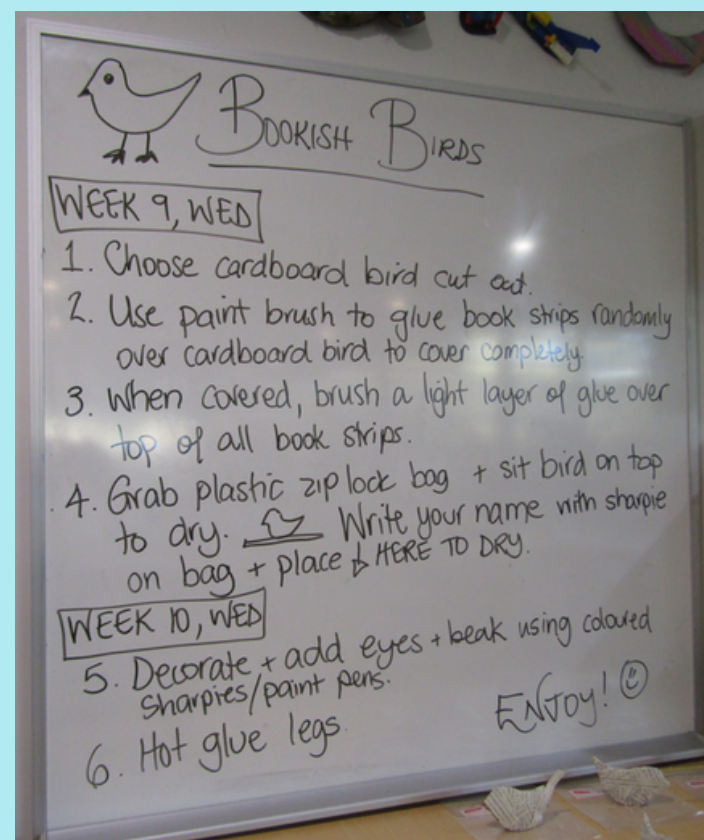 BOOKISH BIRDS
WEEK 9, WED
1. Choose cardboard bird cut out.
2. Use paint brush to glue book strips randomly
over cardboard bird to cover completely.
3. When covered, brush a light layer of glue over
top of all book strips.
4. Grab plastic ziplock bag + sit bird on top
to dry. Write your name with sharpie
on bag + place ↓ HERE TO DRY.
WEEK 10, WED
5. Decorate + add eyes + beak using coloured
sharpies/paint pens.
6. Hot glue legs.
ENJOY! ☺